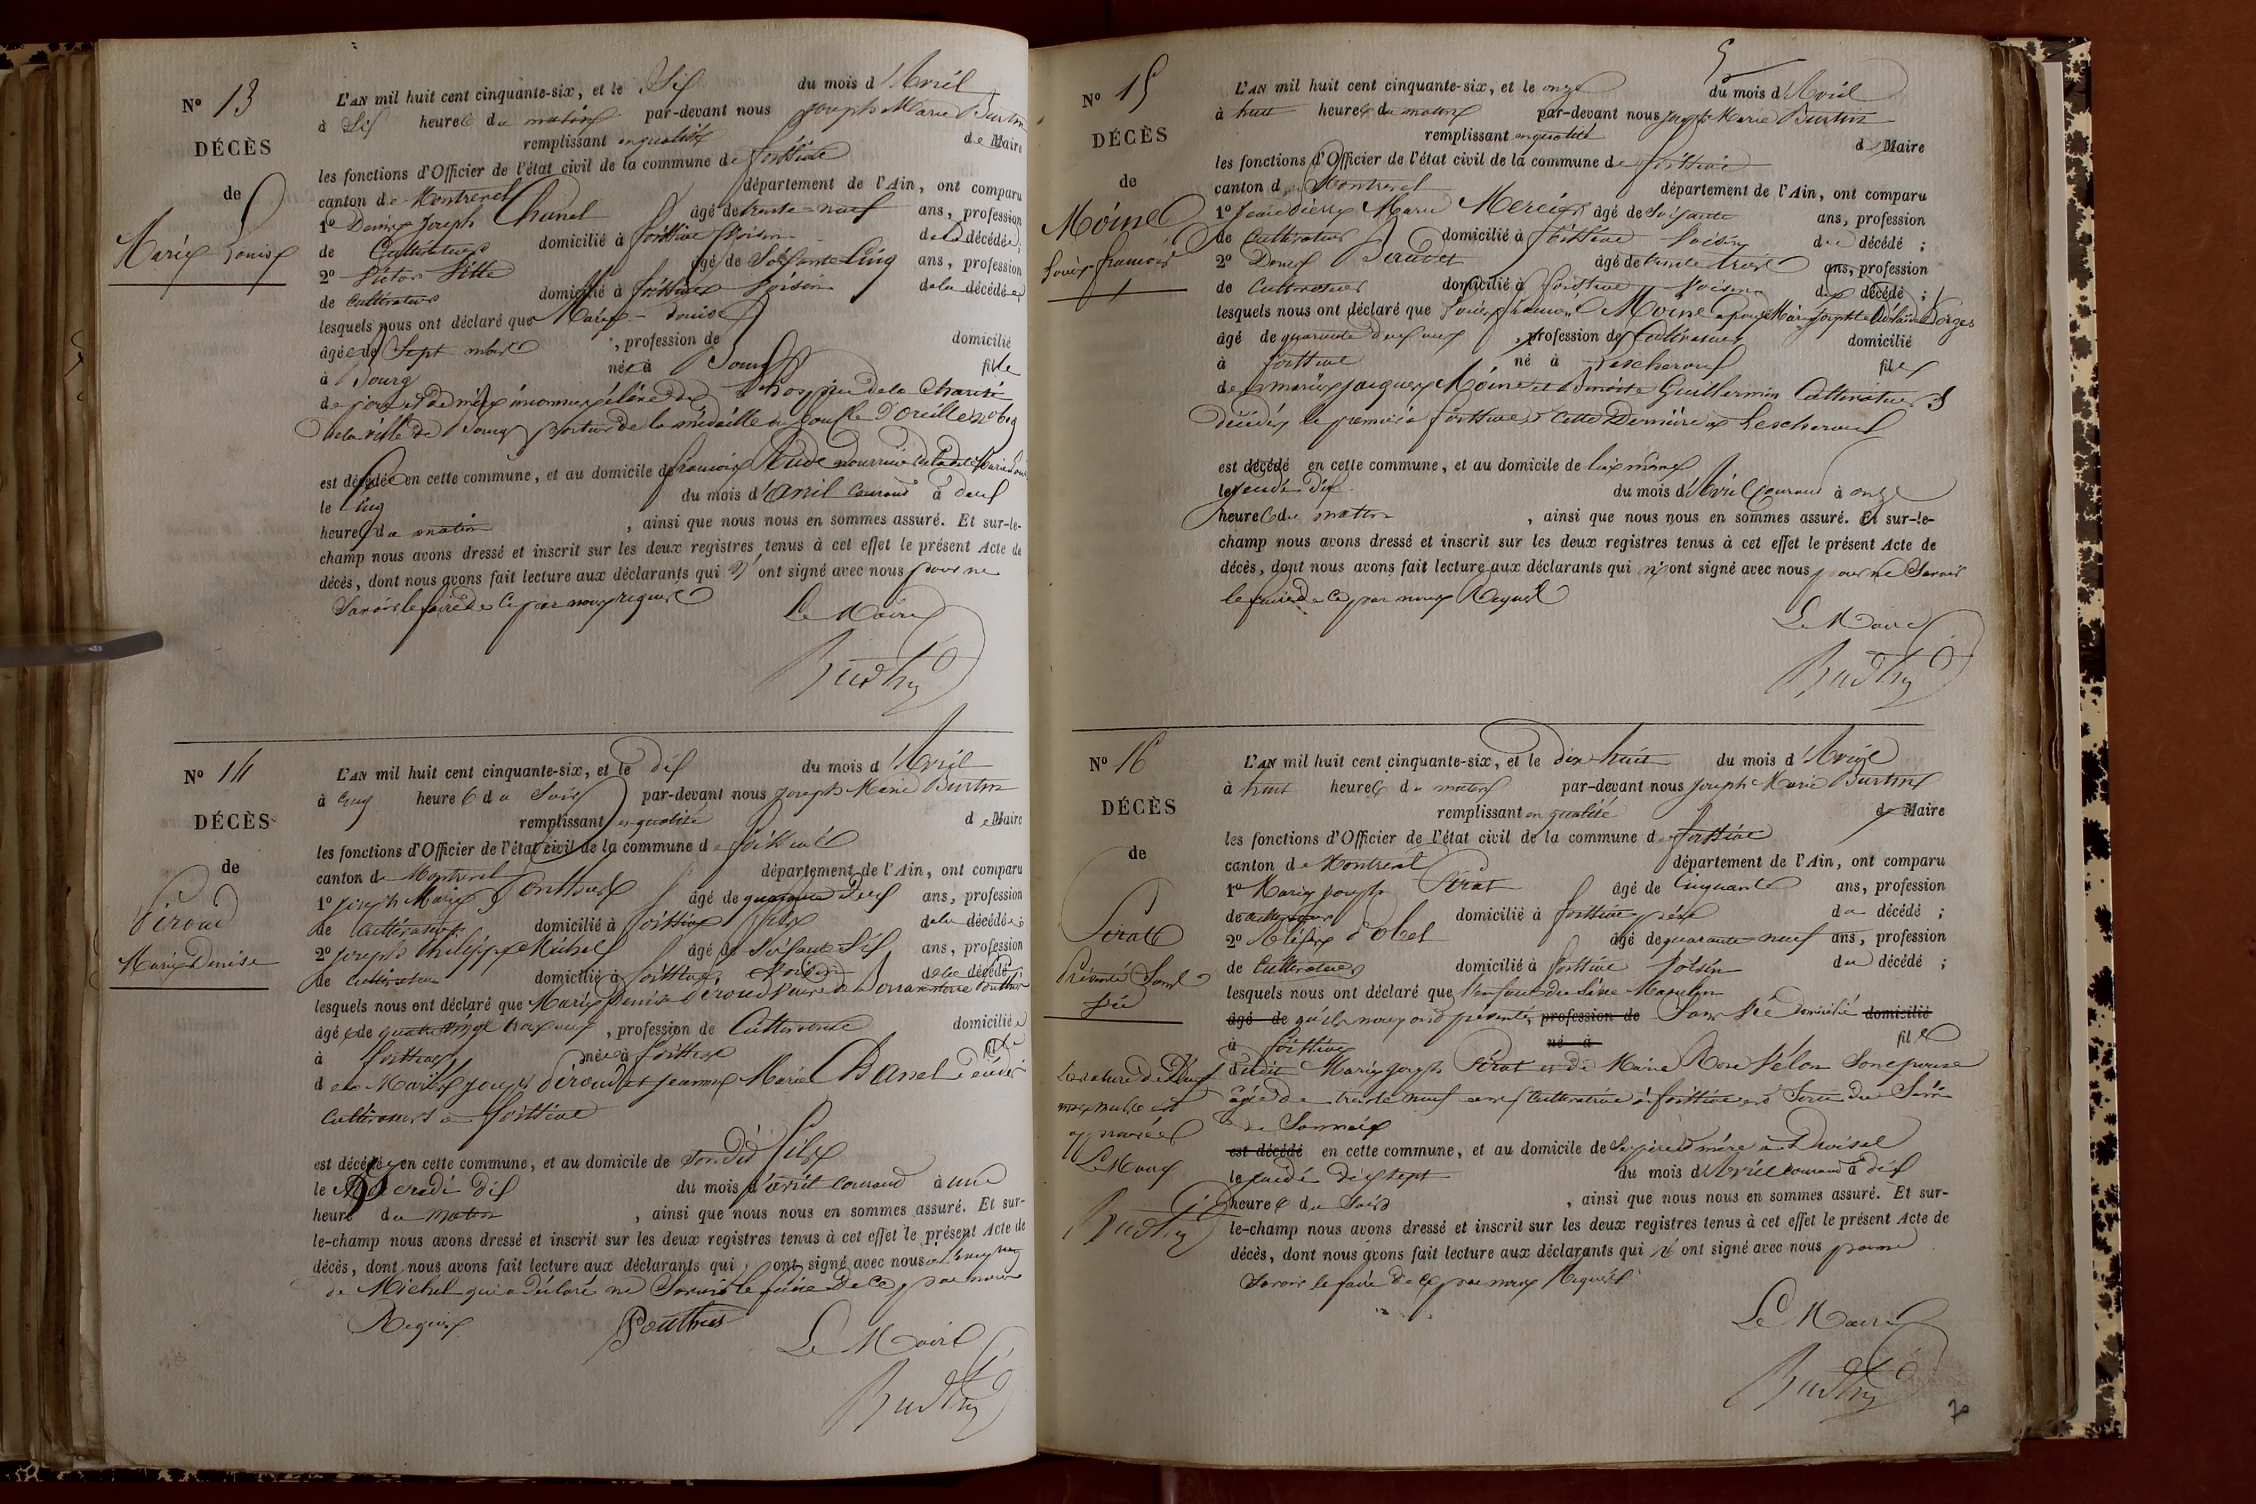 N° 13
DÉCÈS
de
Marie Louise
L'AN mil huit cent cinquante-six, et le Six du mois d'Avril
à Six heures du matin par-devant nous Joseph Marie Burtin
remplissant en qualité de Maire
les fonctions d'Officier de l'état civil de la commune de foissiat
canton de Montrevel département de l'Ain, ont comparu
1° Denis Joseph Chanel âgé de trente-neuf ans, profession
de Cultivateur domicilié à foissiat voisin de la décédée;
2° Victor âgé de Soixante Cinq ans, profession
de Cultivateur domicilié à foissiat voisin de la décédée
lesquels nous ont déclaré que Marie-Louise
âgée de Sept mois, profession de domicilié
à Bourg née à Bourg fille
de père et de mère inconnus élève de l'hospice de la Charité
de la ville de Bourg porteur de la médaille ou boucle d'oreille n°
est décédée en cette commune, et au domicile de françois nourricier de la dite Marie Louise
le Cinq du mois d'avril Courant à deux
heures du matin, ainsi que nous nous en sommes assuré. Et sur-le-
champ nous avons dressé et inscrit sur les deux registres tenus à cet effet le présent Acte de
décès, dont nous avons fait lecture aux déclarants qui n'ont signé avec nous pour ne
Savoir le faire de ce par nous requis
Le Maire
N° 14
DÉCÈS
de
Péroud
Marie Denise
L'AN mil huit cent cinquante-six, et le dix du mois d'Avril
à Cinq heures du Soir par-devant nous Joseph Marie Burtin
remplissant en qualité de Maire
les fonctions d'Officier de l'état civil de la commune de foissiat
canton de Montrevel département de l'Ain, ont comparu
1° Joseph Marie Ponthus âgé de quarante Deux ans, profession
de Cultivateur domicilié à foissiat fils de la décédée;
2° Joseph Philippe Michel âgé de Soixante Six ans, profession
de Cultivateur domicilié à foissiat, Voisin de la décédée;
lesquels nous ont déclaré que Marie Denise Péroud veuve de Ponthus
âgée de quatre vingt trois ans, profession de Cultivatrice domiciliée
à foissiat née à foissiat fille
de Marie Joseph Péroud et Jeanne Marie Chanel Décédés
Cultivateurs à foissiat
est décédée en cette commune, et au domicile de Son dit fils
le dix du mois d'avril Courant à une
heure du matin, ainsi que nous nous en sommes assuré. Et sur-
le-champ nous avons dressé et inscrit sur les deux registres tenus à cet effet le présent Acte de
décès, dont nous avons fait lecture aux déclarants qui ont signé avec nous
de Michel qui a Déclaré ne Savoir le faire De Ce par nous
Requis
Ponthus
Le Maire
N° 15
DÉCÈS
de
Moine
Louis françois
L'AN mil huit cent cinquante-six, et le onze du mois d'Avril
à huit heures du matin par-devant nous Joseph Marie Burtin
remplissant en qualité de Maire
les fonctions d'Officier de l'état civil de la commune de foissiat
canton de Montrevel département de l'Ain, ont comparu
1° Marie Mercier âgé de Soixante ans, profession
de Cultivateur domicilié à foissiat Voisin du décédé;
2° Denis âgé de trente trois ans, profession
de Cultivateur domicilié à foissiat voisin du décédé;
lesquels nous ont déclaré que Louis françois Moine époux Marie Josephte
âgé de quarante deux ans, profession de Cultivateur domicilié
à foissiat né à Lescheroux fils
de Marie Jacques Moine et Benoite Guillermin Cultivateurs
décédés, le premier à foissiat et Cette Dernière à Lescheroux
est décédé en cette commune, et au domicile de lui même
le jeudi dix du mois d'Avril Courant à onze
heures du matin, ainsi que nous nous en sommes assuré. Et sur-le-
champ nous avons dressé et inscrit sur les deux registres tenus à cet effet le présent Acte de
décès, dont nous avons fait lecture aux déclarants qui n'ont signé avec nous pour ne Savoir
le faire de Ce par nous Requis
Le Maire
N° 16
DÉCÈS
de
Pérat
Présenté Sans
vie
La rature de Deux
mots nulle est
approuvée
Le Maire
L'AN mil huit cent cinquante-six, et le dix huit du mois d'Avril
à huit heures du matin par-devant nous Joseph Marie Burtin
remplissant en qualité de Maire
les fonctions d'Officier de l'état civil de la commune de foissiat
canton de Montrevel département de l'Ain, ont comparu
1° Marie Joseph Pérat âgé de Cinquante ans, profession
de Cultivateur domicilié à foissiat père du décédé;
2° âgé de quarante-neuf ans, profession
de Cultivateur domicilié à foissiat Voisin du décédé;
lesquels nous ont déclaré que l'enfant du Sexe Masculin
âgé de qu'ils nous ont présenté, profession de Sans Vie Domicilié domicilié
à foissiat né à fils
dudit Marie Joseph Pérat et de Marie Rose Vélon Son épouse
âgée de trente neuf ans Cultivatrice à foissiat est Sorti du Sein
de Sa mère
est décédé en cette commune, et au domicile de Ses père et mère à
le jeudi dix sept du mois d'Avril Courant à dix
heures du Soir, ainsi que nous nous en sommes assuré. Et sur-
le-champ nous avons dressé et inscrit sur les deux registres tenus à cet effet le présent Acte de
décès, dont nous avons fait lecture aux déclarants qui n'ont signé avec nous pour ne
Savoir le faire de Ce par nous Requis
Le Maire
70